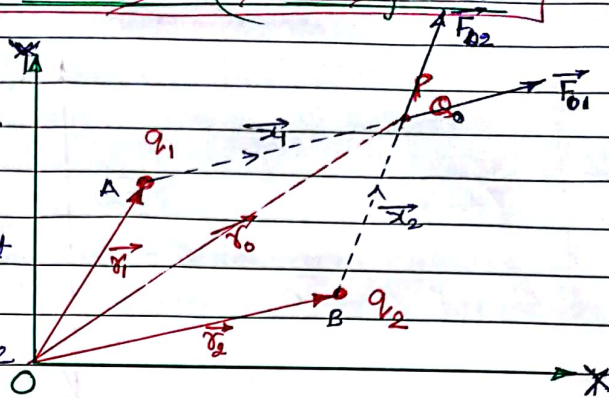 Y
F₀₂
P
Q₀
F₀₁
q₁
x₁
A
r₀
x₂
r₁
B
q₂
r₂
O
X